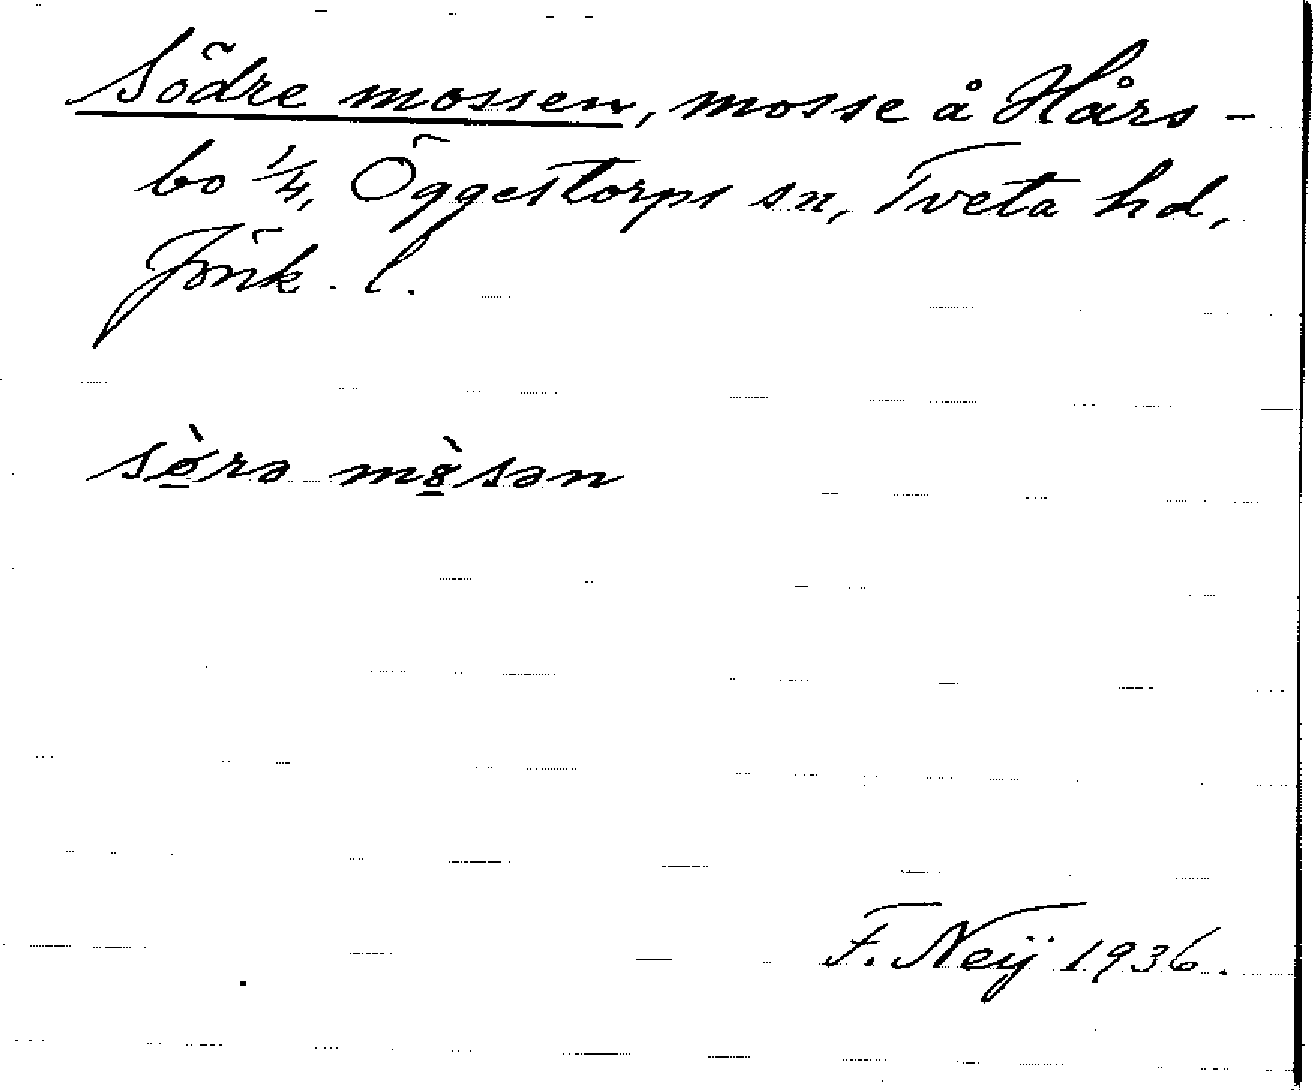 Södre mossen, mosse å Hårs-
bo 1/4, Öggestorps sn, Tveta hd,
Jönk. l.
sø̱̀rə mȣ̱̀sən
F. Neij 1936.